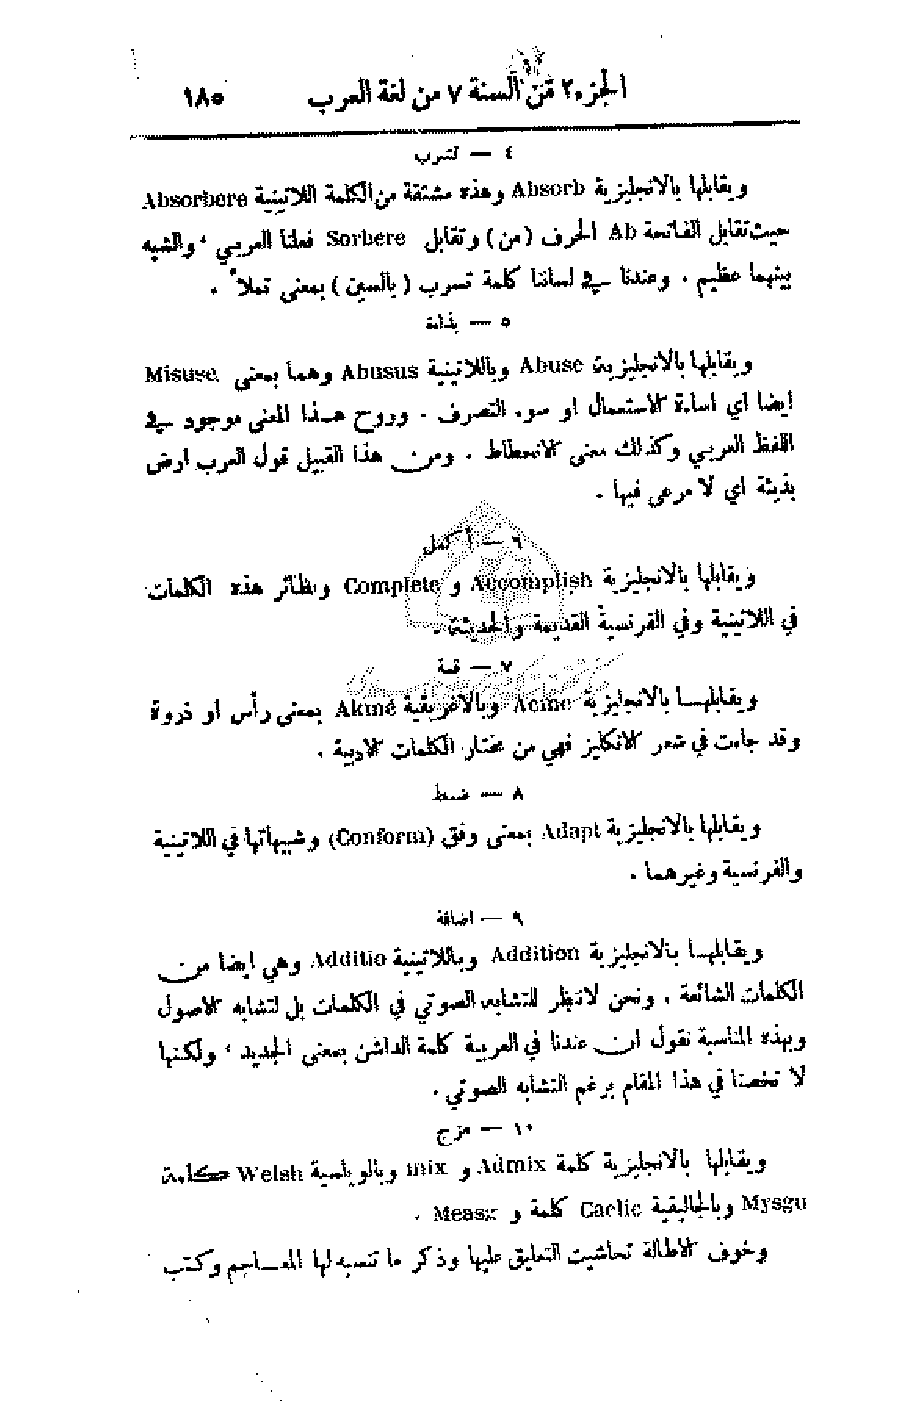 الجزء ٢ من السنة ٧ من لغة العرب ١٨٥
٤ — تشرب
ويقابلها بالانجليزية Absorb وهذه مشتقة من الكلمة اللاتينية Absorbere
حيث تقابل الفاتحة Ab الحرف (من) وتقابل Sorbere فعلنا العربي، والشبه
بينهما عظيم. وعندنا في لساننا كلمة تسرب (بالسين) بمعنى تملأ.
٥ — بذاءة
ويقابلها بالانجليزية Abuse وباللاتينية Abusus وهما بمعنى Misuse.
ايضا اي اساءة الاستعمال او سوء التصرف. وروح هذا المعنى موجود في
اللفظ العربي وكذلك معنى الانحطاط. ومن هذا القبيل قول العرب ارض
بذيئة اي لا مرعى فيها.
٦ — أكمل
ويقابلها بالانجليزية Accomplish و Complete ونظائر هذه الكلمات
في اللاتينية وفي الفرنسية القديمة والحديثة.
٧ — قمة
ويقابلها بالانجليزية Acme وبالاغريقية Akmé بمعنى رأس او ذروة
وقد جاءت في شعر الانكليز فهي من مختار الكلمات الادبية.
٨ — ضبط
ويقابلها بالانجليزية Adapt بمعنى وفق (Conform) وشبيهاتها في اللاتينية
والفرنسية وغيرهما.
٩ — اضافة
ويقابلها بالانجليزية Addition وباللاتينية Additio وهي ايضا من
الكلمات الشائعة. ونحن لا ننظر للتشابه الصوتي في الكلمات بل لتشابه الاصول
وبهذه المناسبة نقول ان عندنا في العربية كلمة الداشن بمعنى الجديد، ولكنها
لا تخصنا في هذا المقام برغم التشابه الصوتي.
١٠ — مزج
ويقابلها بالانجليزية كلمة Admix و mix وبالويلسية Welsh كلمة
Mysgu وبالجاليقية Gaelic كلمة و Measg.
وخوف الاطالة تحاشيت التعليق عليها وذكر ما تنسبه لها المعاجم وكتب